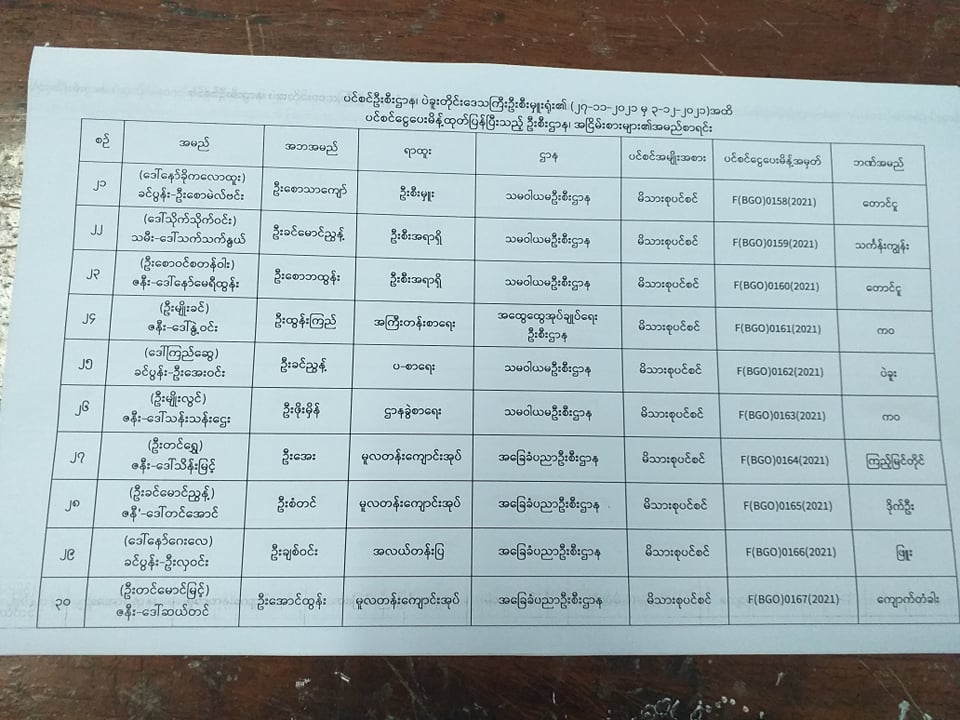 ပင်စင်ဦးစီးဌာန၊ ပဲခူးတိုင်းဒေသကြီးဦးစီးမှူးရုံး၏ (၂၇-၁၁-၂၀၂၁ မှ ၃-၁၂-၂၀၂၁)အထိ
ပင်စင်ငွေပေးမိန့်ထုတ်ပြန်ပြီးသည့် ဦးစီးဌာန၊ အငြိမ်းစားများ၏အမည်စာရင်း
စဉ် အမည် အဘအမည် ရာထူး ဌာန ပင်စင်အမျိုးအစား ပင်စင်ငွေပေးမိန့်အမှတ် ဘဏ်အမည်
၂၁ (ဒေါ်နော်ခိုကလောထူး) ဦးစောသာကျော် ဦးစီးမှူး သမဝါယမဦးစီးဌာန မိသားစုပင်စင် F(BGO)0158(2021) တောင်ငူ
ခင်ပွန်း-ဦးစောမဲလ်ဗင်း
၂၂ (ဒေါ်သိုက်သိုက်ဝင်း) ဦးခင်မောင်ညွန့် ဦးစီးအရာရှိ သမဝါယမဦးစီးဌာန မိသားစုပင်စင် F(BGO)0159(2021) သင်္ကန်းကျွန်း
သမီး-ဒေါ်သက်သက်နွယ်
၂၃ (ဦးစောဝင်စတန်ဝါး) ဦးစောဘထွန်း ဦးစီးအရာရှိ သမဝါယမဦးစီးဌာန မိသားစုပင်စင် F(BGO)0160(2021) တောင်ငူ
ဇနီး-ဒေါ်နော်မေရီထွန်း
၂၄ (ဦးမျိုးခင်) ဦးထွန်းကြည် အကြီးတန်းစာရေး အထွေထွေအုပ်ချုပ်ရေး မိသားစုပင်စင် F(BGO)0161(2021) ကဝ
ဇနီး-ဒေါ်နွဲ့ဝင်း ဦးစီးဌာန
၂၅ (ဒေါ်ကြည်ဆွေ) ဦးခင်ညွန့် ပ-စာရေး သမဝါယမဦးစီးဌာန မိသားစုပင်စင် F(BGO)0162(2021) ပဲခူး
ခင်ပွန်း-ဦးအေးဝင်း
၂၆ (ဦးမျိုးလွင်) ဦးဖိုးမှိန် ဌာနခွဲစာရေး သမဝါယမဦးစီးဌာန မိသားစုပင်စင် F(BGO)0163(2021) ကဝ
ဇနီး-ဒေါ်သန်းသန်းဌေး
၂၇ (ဦးတင်ရွှေ) ဦးအေး မူလတန်းကျောင်းအုပ် အခြေခံပညာဦးစီးဌာန မိသားစုပင်စင် F(BGO)0164(2021) ကြည့်မြင်တိုင်
ဇနီး-ဒေါ်သိန်းမြင့်
၂၈ (ဦးခင်မောင်ညွန့်) ဦးစံတင် မူလတန်းကျောင်းအုပ် အခြေခံပညာဦးစီးဌာန မိသားစုပင်စင် F(BGO)0165(2021) ဒိုက်ဦး
ဇနီ'-ဒေါ်တင်အောင်
၂၉ (ဒေါ်နော်ဂေးလေ) ဦးချစ်ဝင်း အလယ်တန်းပြ အခြေခံပညာဦးစီးဌာန မိသားစုပင်စင် F(BGO)0166(2021) ဖြူး
ခင်ပွန်း-ဦးလှဝင်း
၃၀ (ဦးတင်မောင်မြင့်) ဦးအောင်ထွန်း မူလတန်းကျောင်းအုပ် အခြေခံပညာဦးစီးဌာန မိသားစုပင်စင် F(BGO)0167(2021) ကျောက်တံခါး
ဇနီး-ဒေါ်ဆယ်တင်